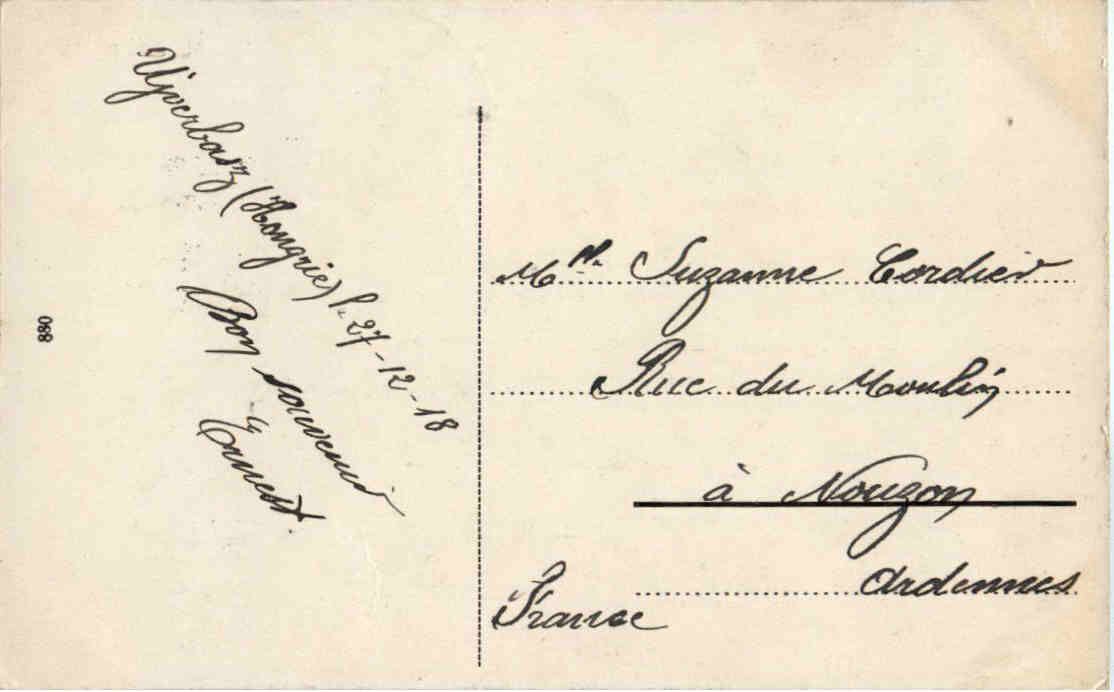 Ujverbasz (Hongrie) le 27-12-18
Bon souvenir
Ernest
880
Mlle Suzanne Cordier
Rue du Moulin
à Nouzon
Ardennes
France